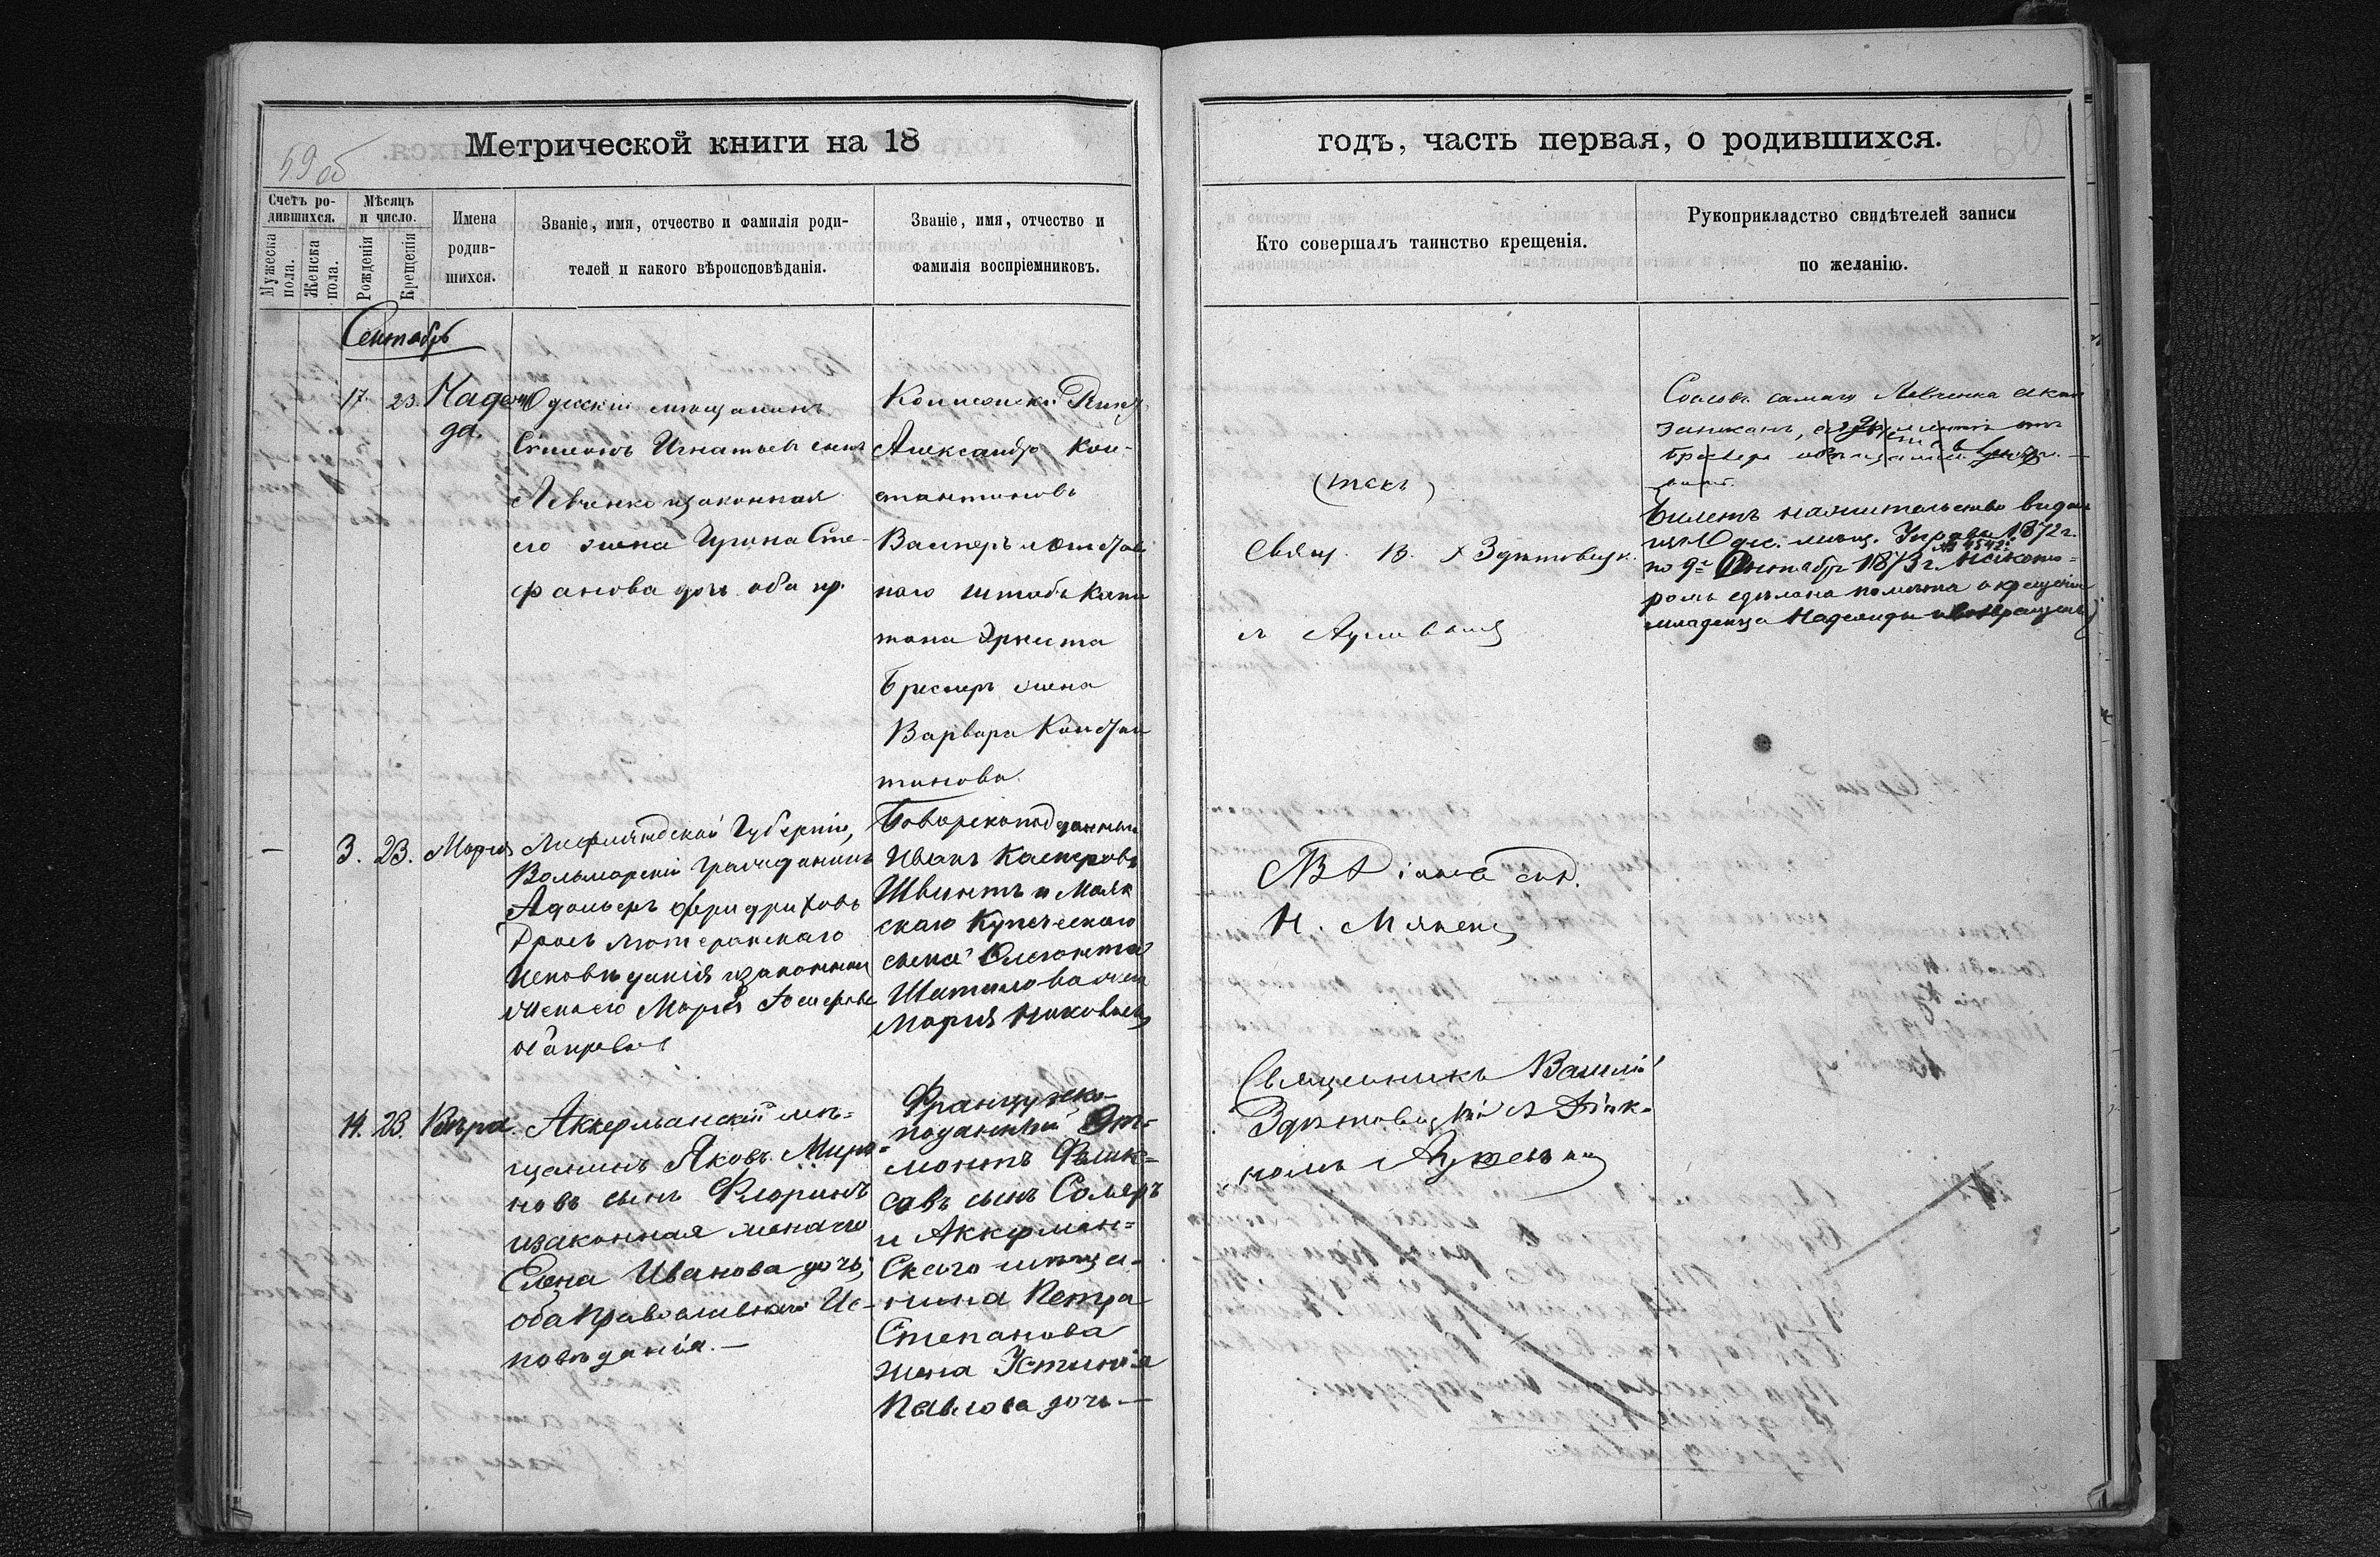 59 об
Метрической книги на 18
Счетъ ро-
дившихся.
Мужеска
пола.
Женска
пола.
Мѣсяцъ
и число.
Рожденія
Крещенія
Имена
родив-
шихся.
Званіе, имя, отчество и фамилія роди-
телей и какого вѣроисповѣданія.
Званіе, имя, отчество и
фамилія воспріемниковъ.
Сентябрь
17. 23. Надеж
да.
Одесскій мѣщанинъ
Симеонъ Игнатьевъ сынъ
Левченко и законная
его жена Ирина Сте-
фанова дочь оба пр.
Александръ Кон-
стантиновъ
Вагнеръ и отстав
наго штабсъ Капи
тана Эрнста
Бреслеръ жена
Варвара Констан
тинова
3. 23. Марія
Лифляндской Губерніи,
Вольмарскій Гражданинъ
Адольфъ Фридриховъ
лютеранскаго
Исповѣданія и законная
жена его Марія
оба правос
Баварскоподданный
Иванъ Касперовъ
Швинтъ и Маяк
скаго Купеческаго
сына
Шатилова жена
Марія Яковлева
14. 23. Вѣра.
Аккерманскій мѣ-
щанинъ Яковъ Миро-
новъ сынъ Флоринъ
и законная жена его
Елена Иванова дочь,
оба Православнаго Ис-
повѣданія. —
Французско-
поданный Эт-
монтъ Фелик-
совъ сынъ Соляръ
и Аккерман-
Скаго мѣща-
нина Петра
Степанова
жена Устинія
Павлова дочь —
годъ, часть первая, о родившихся.
60
Кто совершалъ таинство крещенія.
Рукоприкладство свидѣтелей записи
по желанію.
Свящ. В.
Н.
Священникъ Василій
и Діак-
номъ
Со словъ самаго Левченка актъ
записанъ,
Билетъ на жительство выдан
изъ Одес. мѣщ. Управы 1872 г.
№ 4542
по 9е Октября 1873 г. на кото-
ромъ сдѣлана помѣтка о крещеніи
младенца Надежды и возвращенъ